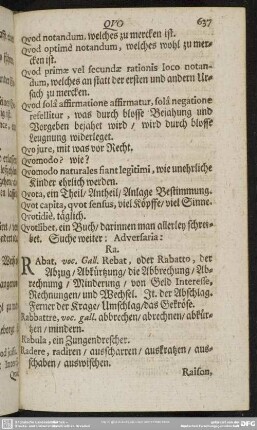 QVO 637
Qvod notandum, welches zu mercken ist.
Qvod optimè notandum, welches wohl zu mer-
cken ist.
Qvod primæ vel secundæ rationis loco notan-
dum, welches an statt der ersten und andern Ur-
sach zu mercken.
Qvod solâ affirmatione affirmatur, solâ negatione
refellitur, was durch blosse Bejahung und
Vorgeben bejahet wird / wird durch blosse
Leugnung widerleget.
Qvo jure, mit was vor Recht.
Qvomodo? wie?
Qvomodo naturales fiant legitimi, wie unehrliche
Kinder ehrlich werden.
Qvota, ein Theil / Antheil / Anlage Bestimmung.
Qvot capita, qvot sensus, viel Köpffe / viel Sinne.
Qvotidiè, täglich.
Qvotlibet, ein Buch / darinnen man allerley schrei-
bet. Suche weiter: Adversaria:
Ra.
Rabat. voc. Gall. Rebat, oder Rabatto, der
Abzug / Abkürtzung / die Abbrechung / Ab-
rechnung / Minderung / von Geld Interesse,
Rechnungen / und Wechsel. It. der Abschlag.
Ferner der Krage / Umschlag / das Gekröse.
Rabbattre, voc. gall. abbrechen / abrechnen / abkür-
tzen / mindern.
Rabula, ein Zungendrescher.
Radere, radiren / ausscharren / auskratzen / aus-
schaben / auswischen.
Raison,